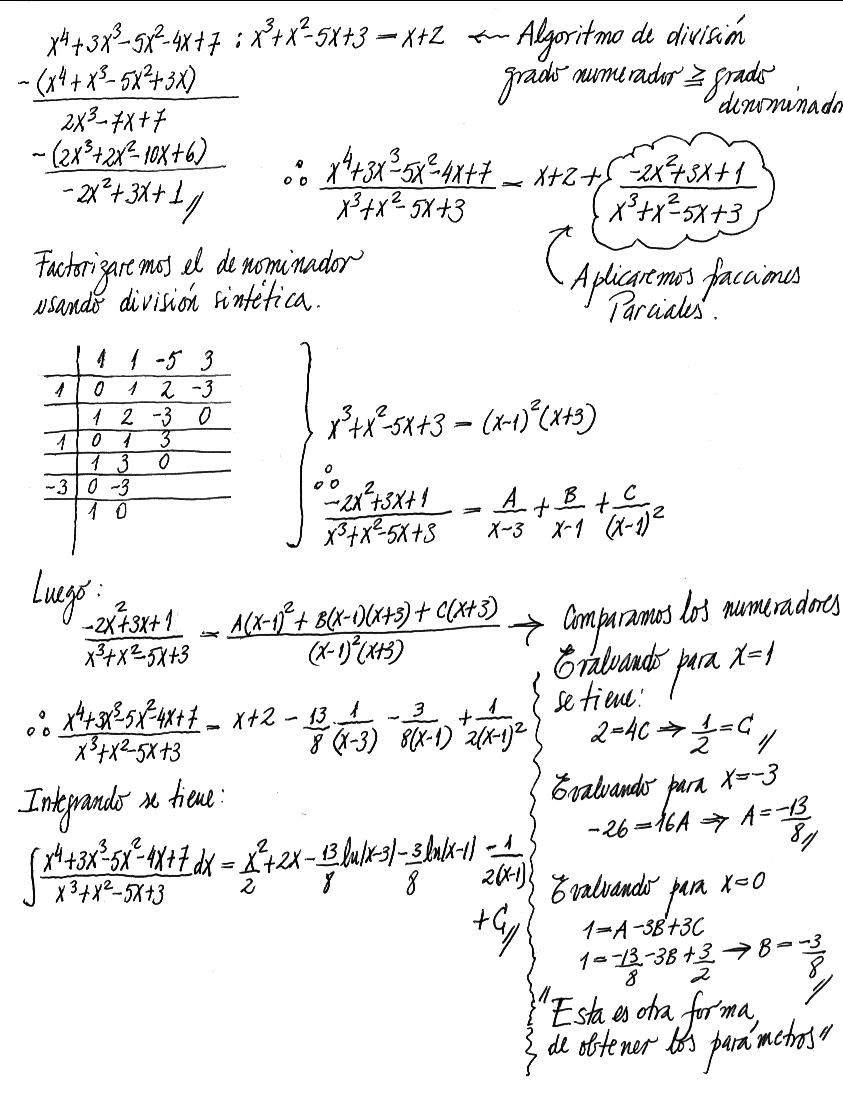 x⁴+3x³-5x²-4x+7 : x³+x²-5x+3 = x+2 ← Algoritmo de división
grado numerador ≥ grado
denominado
-(x⁴+x³-5x²+3x)
2x³-7x+7
-(2x³+2x²-10x+6)
-2x²+3x+1 //
∴ (x⁴+3x³-5x²-4x+7)/(x³+x²-5x+3) = x+2+ (-2x²+3x+1)/(x³+x²-5x+3)
Aplicaremos facciones
Parciales.
Factorizaremos el denominador
usando división sintética.
1 1 -5 3
1 0 1 2 -3
1 2 -3 0
1 0 1 3
1 3 0
-3 0 -3
1 0
x³+x²-5x+3 = (x-1)²(x+3)
∴ (-2x²+3x+1)/(x³+x²-5x+3) = A/(x-3) + B/(x-1) + C/(x-1)²
Luego:
(-2x²+3x+1)/(x³+x²-5x+3) = (A(x-1)²+B(x-1)(x+3)+C(x+3))/((x-1)²(x+3)) → Comparamos los numeradores
Evaluando para x=1
se tiene:
2=4C ⇒ 1/2=C //
Evaluando para x=-3
-26=16A ⇒ A=-13/8 //
Evaluando para x=0
1=A-3B+3C
1=-13/8-3B+3/2 → B=-3/8 //
"Esta es otra forma,
de obtener los parámetros"
∴ (x⁴+3x³-5x²-4x+7)/(x³+x²-5x+3) = x+2 - 13/8 1/(x-3) - 3/(8(x-1)) + 1/(2(x-1)²)
Integrando se tiene:
∫ (x⁴+3x³-5x²-4x+7)/(x³+x²-5x+3) dx = x²/2+2x-13/8 ln|x-3|-3/8 ln|x-1| -1/(2(x-1))
+C //